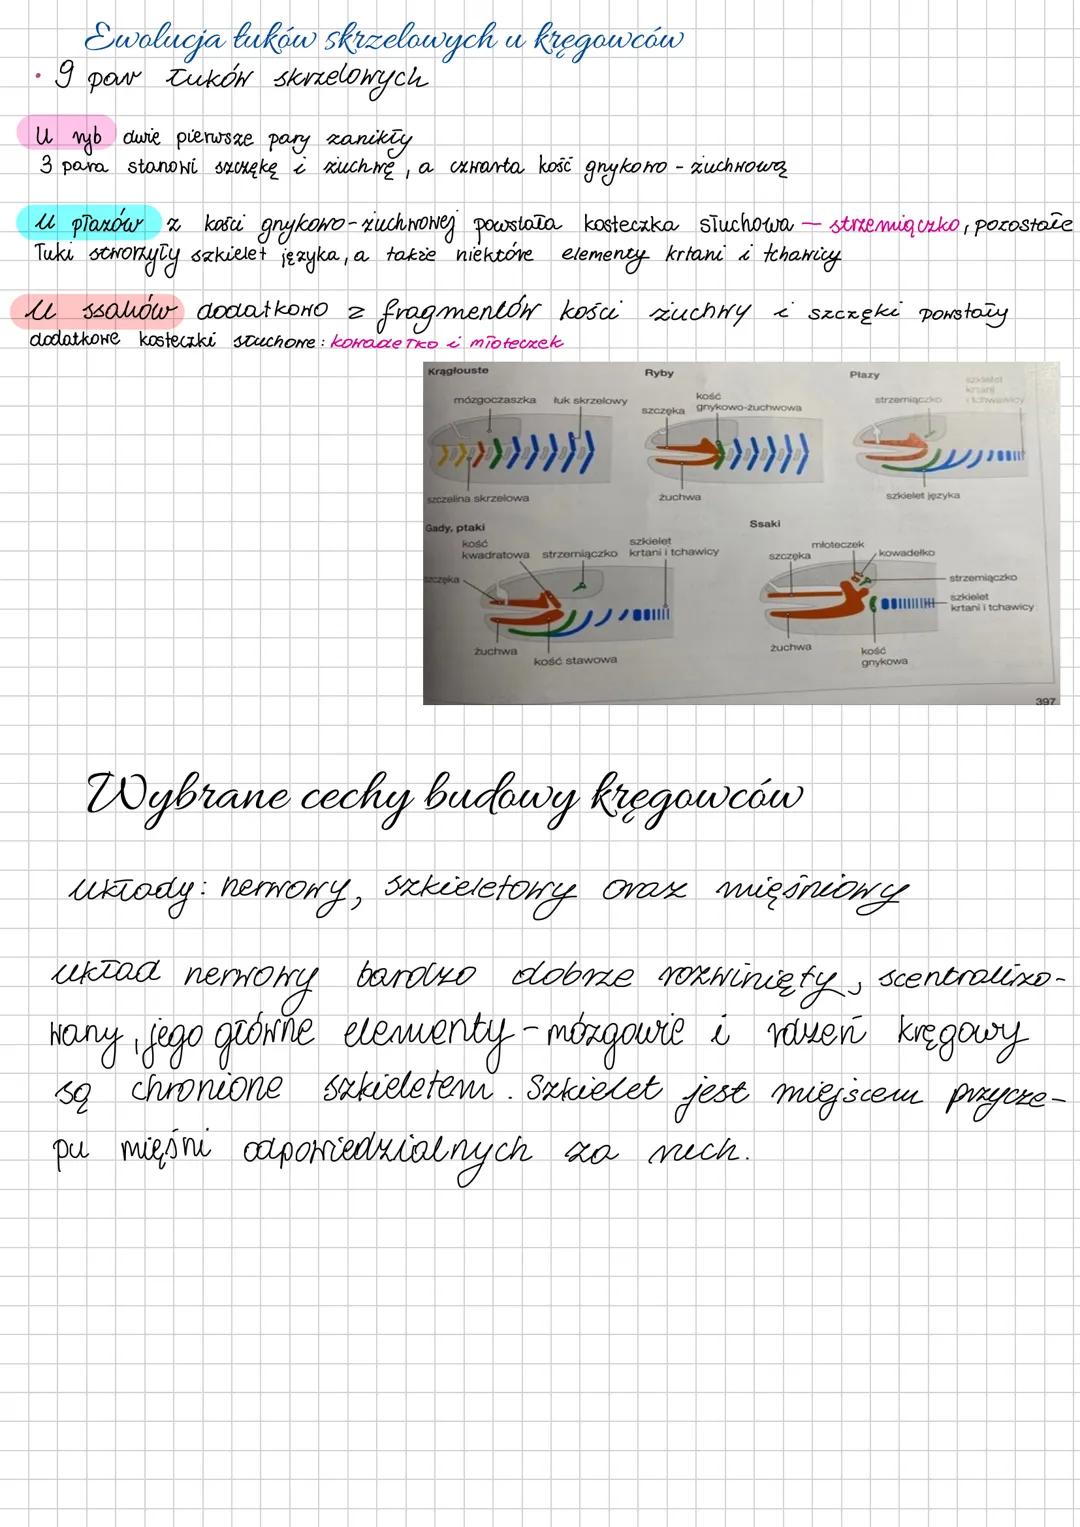 Ewolucja łuków skrzelowych u kręgowców
• 9 par łuków skrzelowych
U ryb dwie pierwsze pary zanikły
3 para stanowi szczękę i żuchwę, a czwarta kość gnykowo-żuchwową
U płazów z kości gnykowo-żuchwowej powstała kosteczka słuchowa — strzemiączko, pozostałe
łuki stworzyły szkielet języka, a także niektóre elementy krtani i tchawicy
U ssaków dodatkowo z fragmentów kości żuchwy i szczęki powstały
dodatkowe kosteczki słuchowe: kowadełko i młoteczek
Krągłouste
Ryby
Płazy
mózgoczaszka
łuk skrzelowy
szczęka
kość
gnykowo-żuchwowa
strzemiączko
szkielet
krtani
i tchawicy
szczelina skrzelowa
żuchwa
szkielet języka
Gady, ptaki
Ssaki
kość
kwadratowa
strzemiączko
szkielet
krtani i tchawicy
szczęka
młoteczek
kowadełko
szczęka
strzemiączko
szkielet
krtani i tchawicy
żuchwa
kość stawowa
żuchwa
kość
gnykowa
397
Wybrane cechy budowy kręgowców
układy: nerwowy, szkieletowy oraz mięśniowy
układ nerwowy bardzo dobrze rozwinięty, scentralizo-
wany, jego główne elementy - mózgowie i rdzeń kręgowy
są chronione szkieletem. Szkielet jest miejscem przycze-
pu mięśni odpowiedzialnych za ruch.